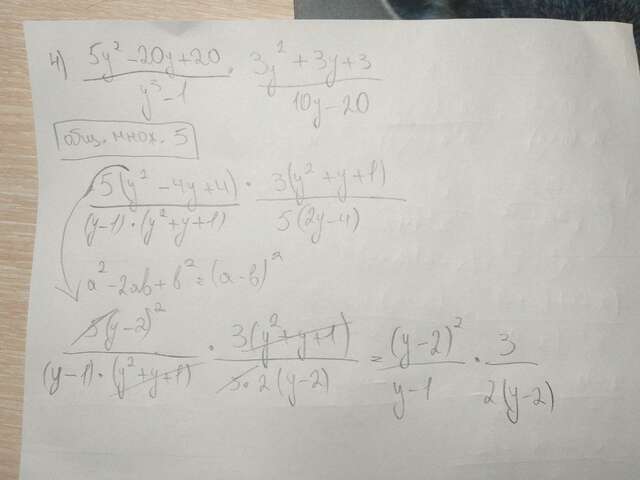 4) (5y² - 20y + 20)/(y³ - 1) · (3y² + 3y + 3)/(10y - 20)
общ. множ. 5
5(y² - 4y + 4)/((y-1)·(y² + y + 1)) · 3(y² + y + 1)/(5(2y-4))
a² - 2ab + b² = (a - b)²
5(y-2)²/((y-1)·(y² + y + 1)) · 3(y² + y + 1)/(5·2(y-2)) = (y-2)²/(y-1) · 3/(2(y-2))